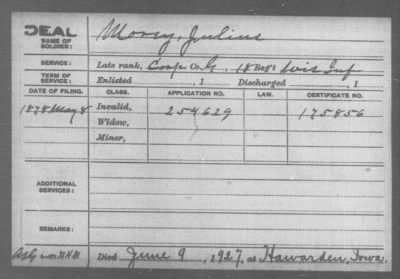 DEAL
NAME OF SOLDIER: Morey, Julius
SERVICE: Late rank, Corp Co. G, 18 Reg't Wis Inf
TERM OF SERVICE: Enlisted , 1 Discharged , 1
DATE OF FILING. CLASS. APPLICATION NO. LAW. CERTIFICATE NO.
1878 May 8 Invalid, 254629 175856
Widow,
Minor,
ADDITIONAL SERVICES:
REMARKS:
Died June 9, 1927, at Hawarden, Iowa.